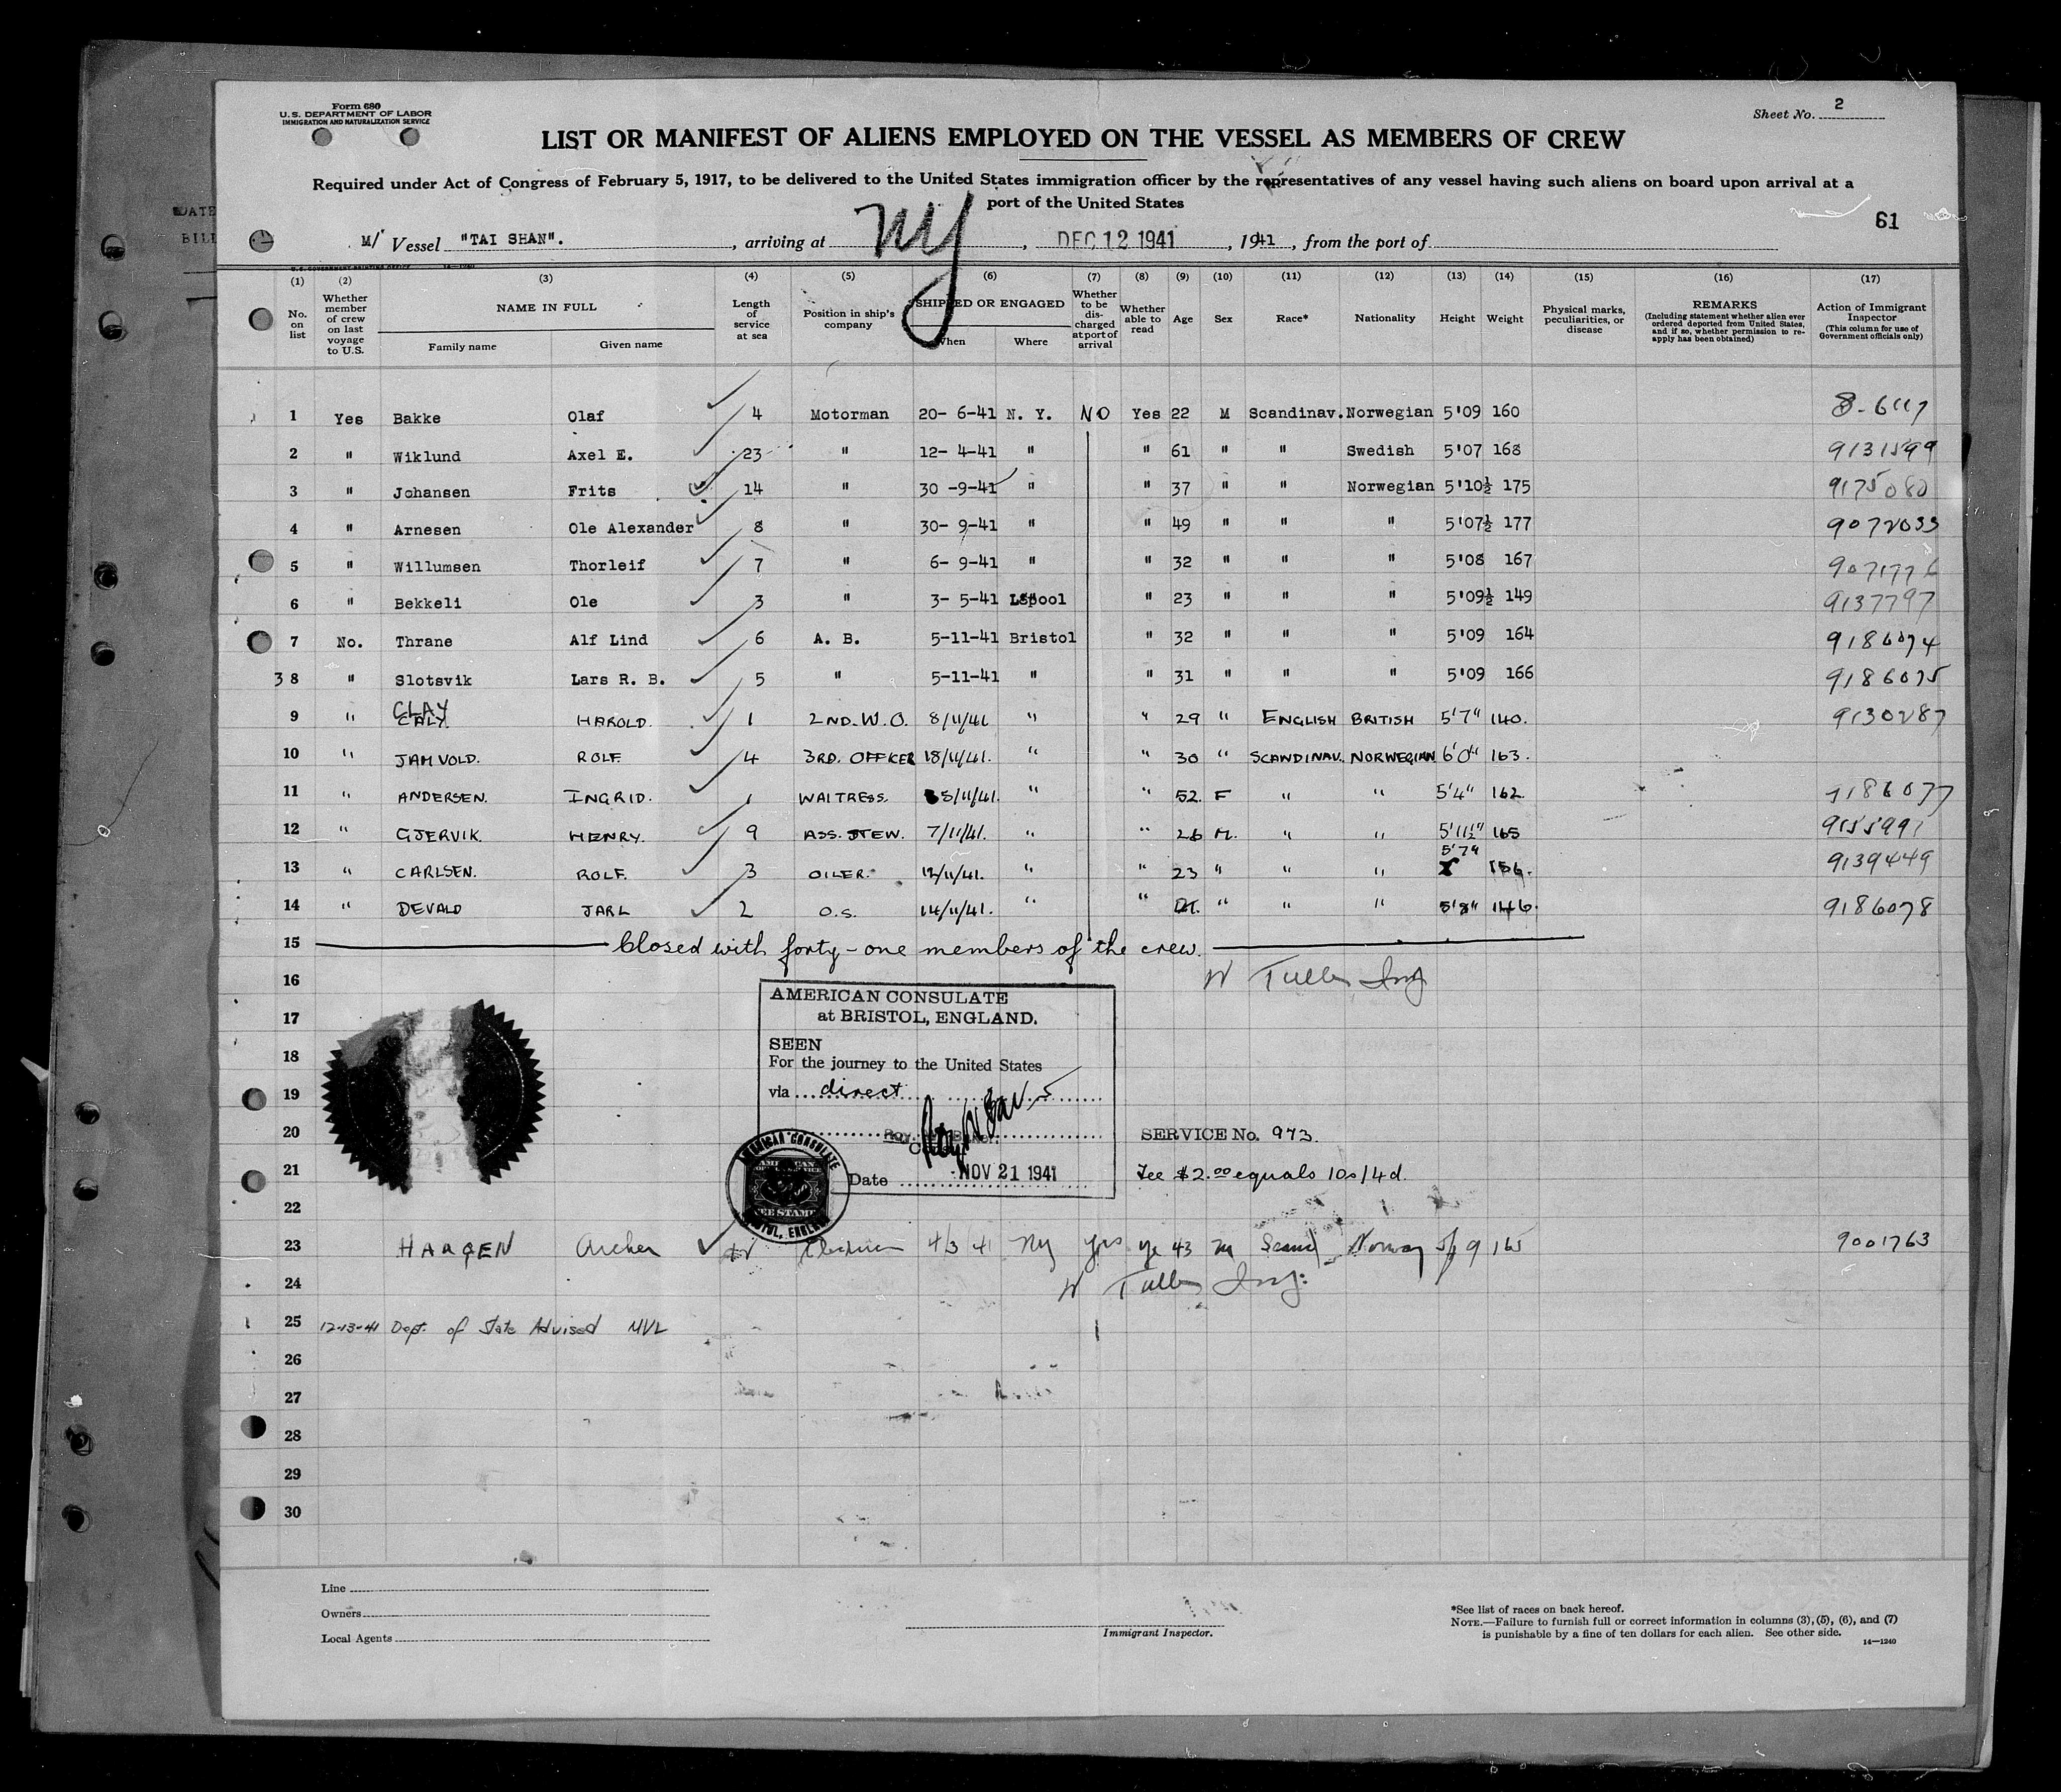 Form 680
U. S. DEPARTMENT OF LABOR
IMMIGRATION AND NATURALIZATION SERVICE
Sheet No. 2
LIST OR MANIFEST OF ALIENS EMPLOYED ON THE VESSEL AS MEMBERS OF CREW
Required under Act of Congress of February 5, 1917, to be delivered to the United States immigration officer by the representatives of any vessel having such aliens on board upon arrival at a
port of the United States
61
DATE
BILL
M/ Vessel "TAI SHAN"., arriving at NY, DEC 12 1941, 1941, from the port of
U. S. GOVERNMENT PRINTING OFFICE
(1) (2) (3) (4) (5) (6) (7) (8) (9) (10) (11) (12) (13) (14) (15) (16) (17)
No. on list
Whether member of crew on last voyage to U.S.
NAME IN FULL
Family name
Given name
Length of service at sea
Position in ship's company
SHIPPED OR ENGAGED
When
Where
Whether to be discharged at port of arrival
Whether able to read
Age
Sex
Race*
Nationality
Height
Weight
Physical marks, peculiarities, or disease
REMARKS
(Including statement whether alien ever ordered deported from United States, and if so, whether permission to reapply has been obtained)
Action of Immigrant Inspector
(This column for use of Government officials only)
1 Yes Bakke Olaf 4 Motorman 20- 6-41 N. Y. NO Yes 22 M Scandinav. Norwegian 5'09 160
2 " Wiklund Axel E. 23 " 12- 4-41 " " 61 " " Swedish 5'07 168 9131599
3 " Johansen Frits 14 " 30 -9-41 " " 37 " " Norwegian 5'10½ 175 9175080
4 " Arnesen Ole Alexander 8 " 30- 9-41 " " 49 " " " 5'07½ 177 9072033
5 " Willumsen Thorleif 7 " 6- 9-41 " " 32 " " " 5'08 167 9071776
6 " Bekkeli Ole 3 " 3- 5-41 Lspool " 23 " " " 5'09½ 149 9137797
7 No. Thrane Alf Lind 6 A. B. 5-11-41 Bristol " 32 " " " 5'09 164 9186074
38 " Slotsvik Lars R. B. 5 " 5-11-41 " " 31 " " " 5'09 166 9186075
CLAY
9 " CALY. HAROLD. 1 2ND. W.O. 8/11/41 " " 29 " ENGLISH BRITISH 5'7" 140. 9130287
10 " JAMVOLD. ROLF 4 3RD. OFFICER 18/11/41. " " 30 " SCANDINAV. NORWEGIAN 6'0" 163.
11 " ANDERSEN. INGRID. 1 WAITRESS. 5/11/41. " " 52. F " " 5'4" 162. 9186077
12 " GJERVIK. HENRY. 9 ASS. STEW. 7/11/41. " " 26 M. " " 5'11½" 165
5'7"
13 " CARLSEN. ROLF. 3 OILER. 12/11/41. " " 23 " " " 156. 9139449
14 " DEVALD JARL 2 O.S. 14/11/41. " " 21. " " " 5'8" 146. 9186078
15 Closed with forty-one members of the crew.
16
AMERICAN CONSULATE
17 at BRISTOL, ENGLAND.
SEEN
18 For the journey to the United States
19 via direct
20 SERVICE No. 973.
21 Date NOV 21 1941 Fee $2.00 equals 10s/4d.
AMERICAN CONSULATE
FEE STAMP
BRISTOL, ENGLAND
22
23 HAAGEN Archer 4/3 41 NY yes 43 M Scand Norway 5/9 165 9001763
24
25 12-13-41 Dept. of State Advised MVL
26
27
28
29
30
Line
Owners
Local Agents
Immigrant Inspector.
*See list of races on back hereof.
NOTE.—Failure to furnish full or correct information in columns (3), (5), (6), and (7)
is punishable by a fine of ten dollars for each alien. See other side.
14—1240